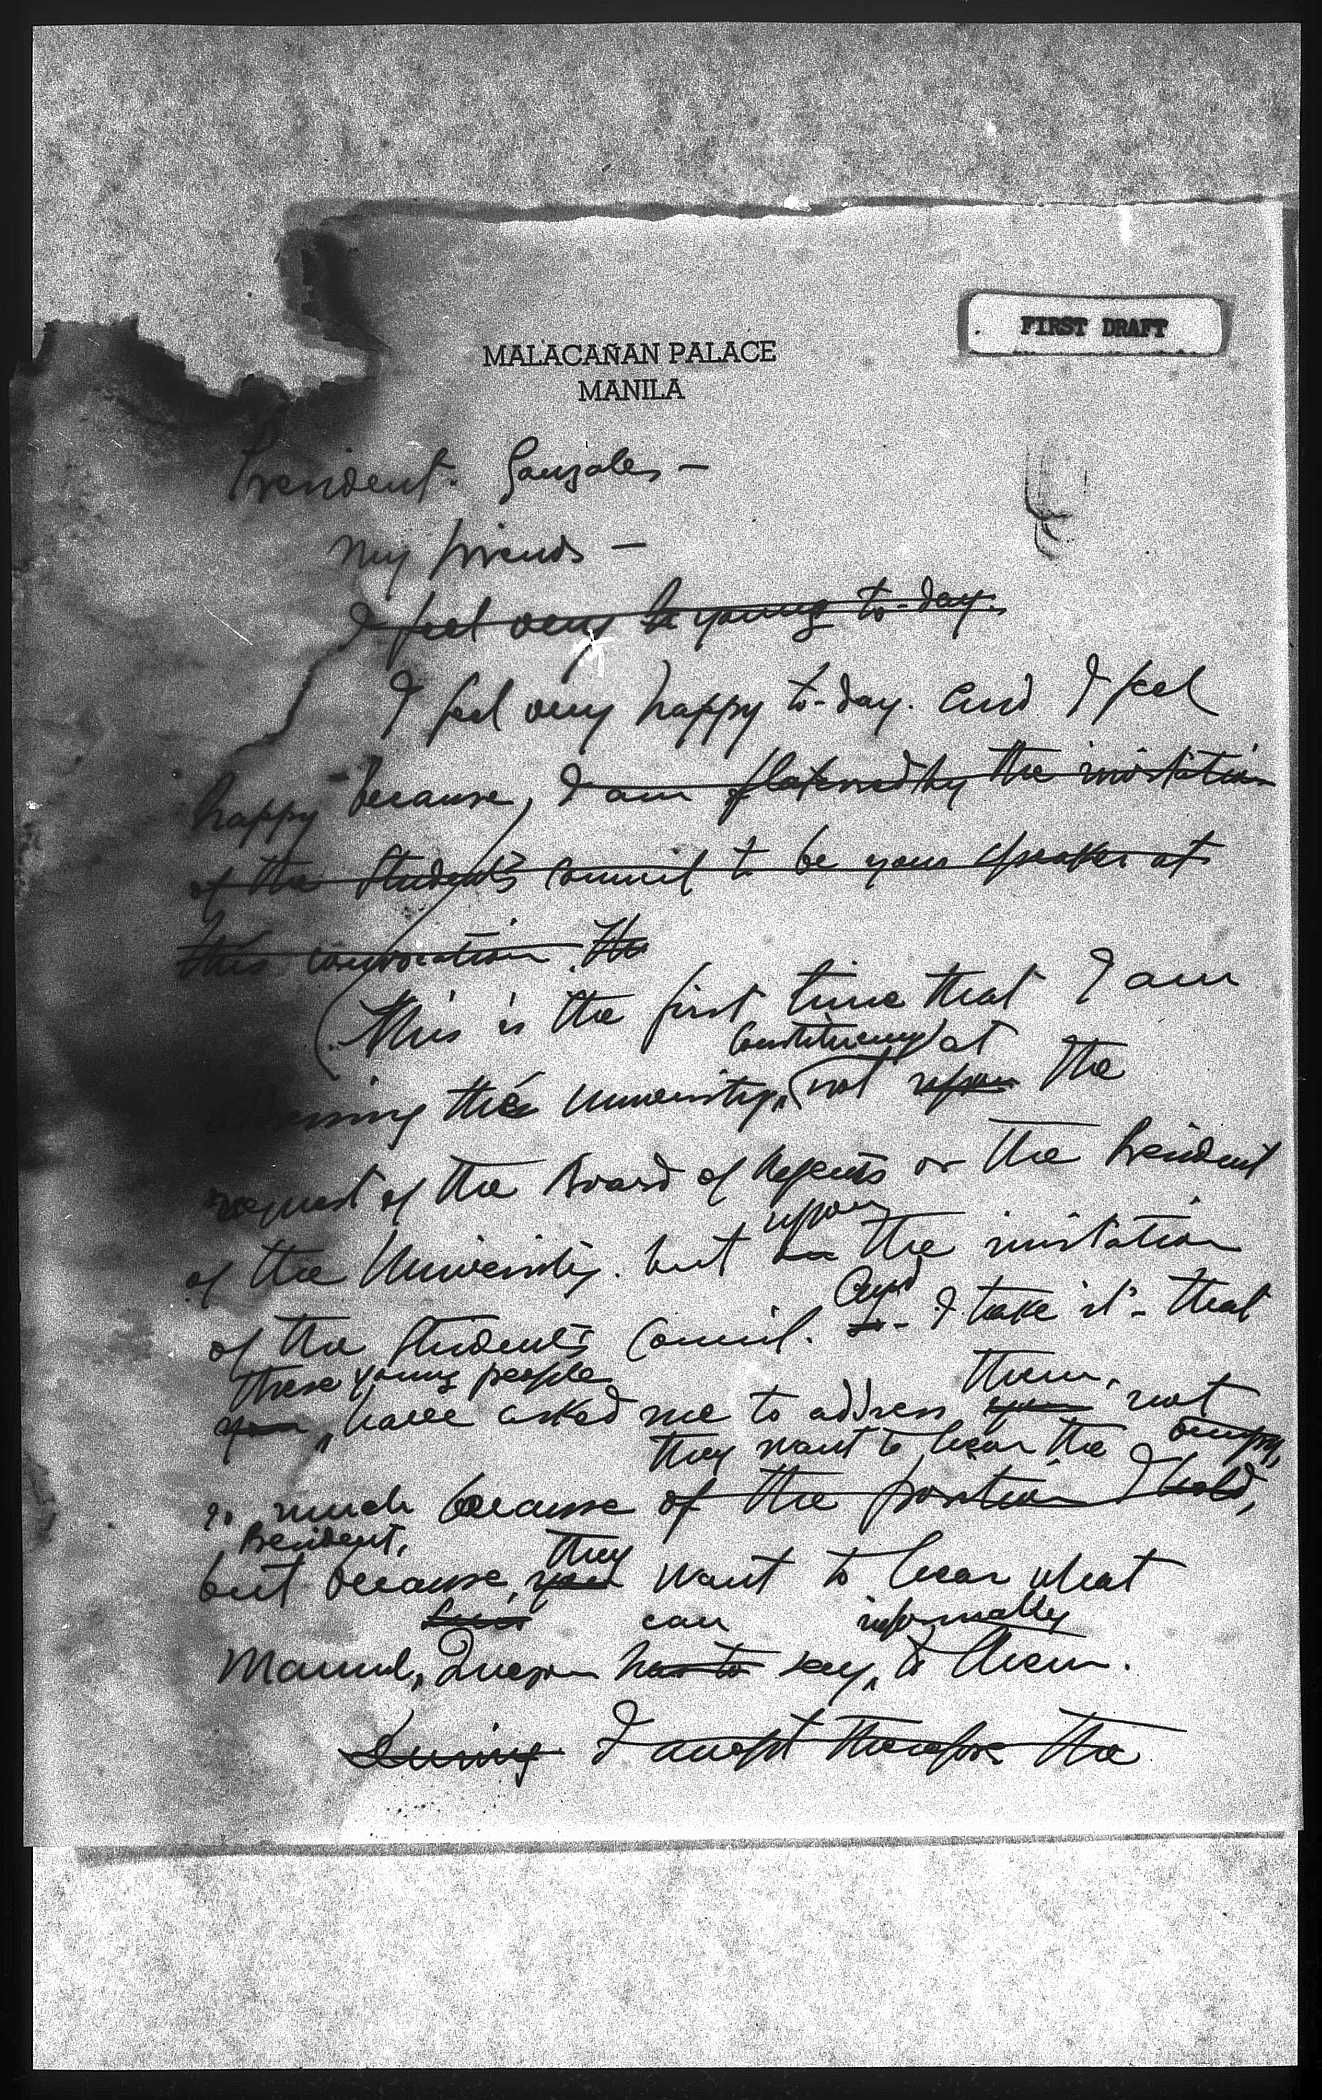 FIRST DRAFT
MALACAÑAN PALACE
MANILA
President Gonzales —
My friends —
I feel very young to-day.
I feel very happy to-day. And I feel
happy because, I am flatered by the invitation
of the Student's Council to be your speaker at
this convocation. The
This is the first time that I am
Constituency at
the University, not upon the
request of the Board of Regents or the President
upon
of the University. but the invitation
And
of the Student's Council. I take it - that
these young people them,
you have asked me to address you not
they want to hear the
so much because of the position I hold,
President,
they
but because, you want to hear what
can informally
Manuel Quezon has to say, to them.
During I accept therefore the